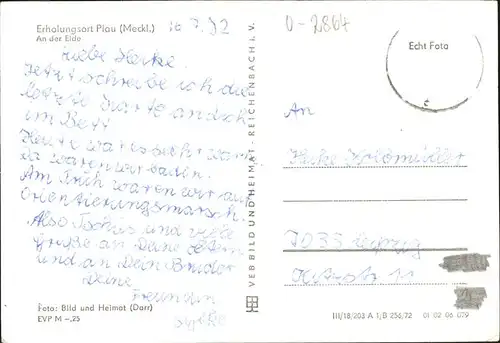 Erholungsort Plau (Meckl.)
An der Elde
16.7.72
0-2864
Liebe Heike.
Jetzt schreibe ich die
letzte Karte an dich
im Bett
Heute war es sehr warm
da waren wir baden.
Am Früh waren wir auf
Orientierungsmarsch.
Also Tschüs und viele
Grüße an Deine Eltern
und an Dein Bruder
Deine
Freundin
Foto: Bild und Heimat (Darr)
EVP M –,25
VEB BILD UND HEIMAT · REICHENBACH i. V.
Echt Foto
An
Heike
7033 Leipzig
11
III/18/203 A 1/B 256/72 01 02 06 079